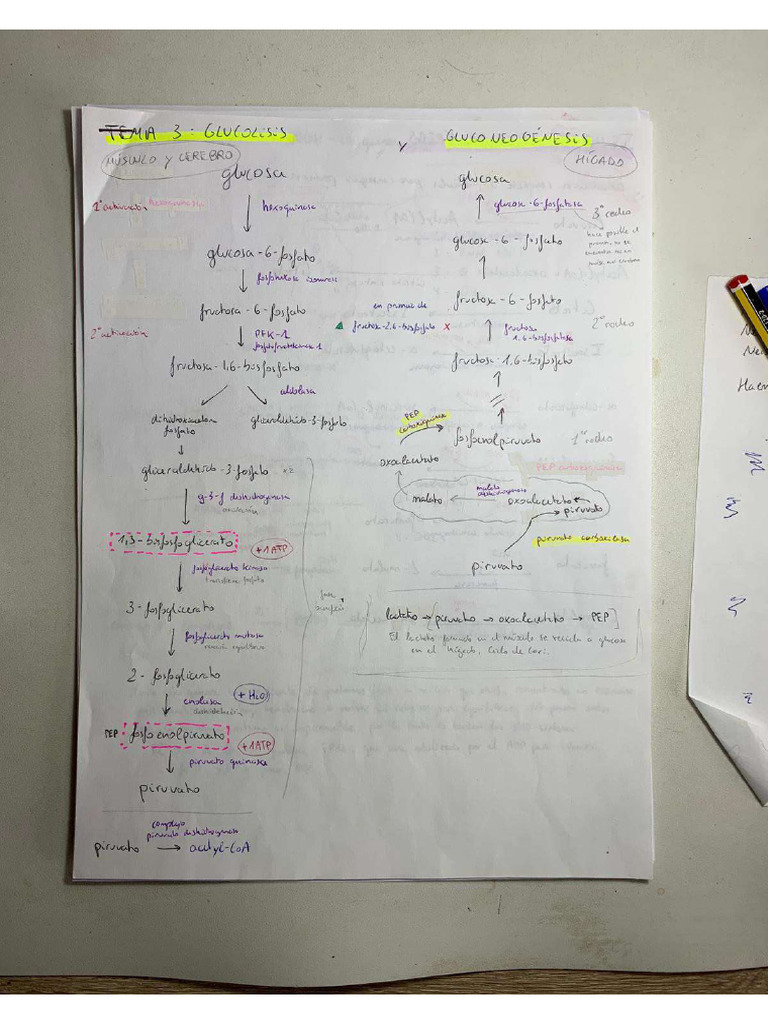 TEMA 3: GLUCOLISIS y GLUCONEOGÉNESIS
MÚSCULO Y CEREBRO
HÍGADO
glucosa
1ª activación hexoquinasa
hexoquinasa
glucosa-6-fosfato
fosfohexosa isomerasa
fructosa-6-fosfato
2ª activación
PFK-1
fosfofructokinasa 1
fructosa-1,6-bisfosfato
aldolasa
dihidroxiacetona
fosfato
gliceraldehido-3-fosfato
gliceraldehido-3-fosfato x2
g-3-f deshidrogenasa
oxidación
1,3-bisfosfoglicerato
+1ATP
fosfoglicerato kinasa
transfiere fosfato
3-fosfoglicerato
fosfoglicerato mutasa
2-fosfoglicerato
enolasa
+H2O
deshidratación
PEP fosfoenolpiruvato
+1ATP
piruvato quinasa
piruvato
fase
complejo
piruvato deshidrogenasa
piruvato → acetyl-CoA
glucosa
glucosa-6-fosfatasa
3º rodeo
hace posible el
proceso, no se
encuentra en
glucosa-6-fosfato
fructosa-6-fosfato
en presencia de
fructosa-2,6-bisfosfato x
fructosa
1,6-bisfosfatasa
2º rodeo
fructosa-1,6-bisfosfato
PEP
carboxiquinasa
fosfoenolpiruvato
1º rodeo
PEP carboxiquinasa
oxalacetato
malato
malato
deshidrogenasa
oxalacetato
piruvato
piruvato carboxilasa
piruvato
lactato → [piruvato → oxalacetato → PEP]
El lactato formado en el músculo se recicla a glucosa
en el hígado, Ciclo de Cori.